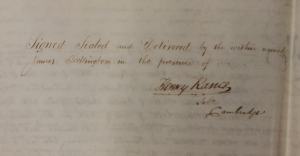 Signed Sealed and Delivered by the within named
James Bedlington in the presence of
Henry Rance
Solr
Cambridge